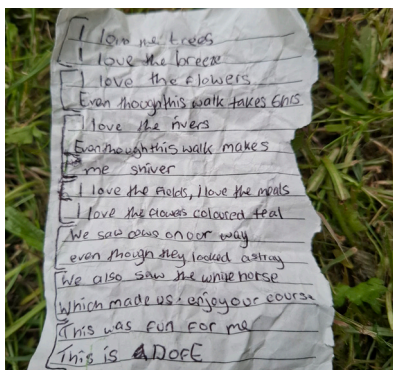 I love the trees
I love the breeze
I love the flowers
Even though this walk takes 6hrs
I love the rivers
Even though this walk makes
me shiver
I love the fields, I love the meals
I love the flowers coloured teal
We saw cows on our way
even though they looked astray
We also saw the white horse
Which made us enjoy our course
This was fun for me
This is DofE